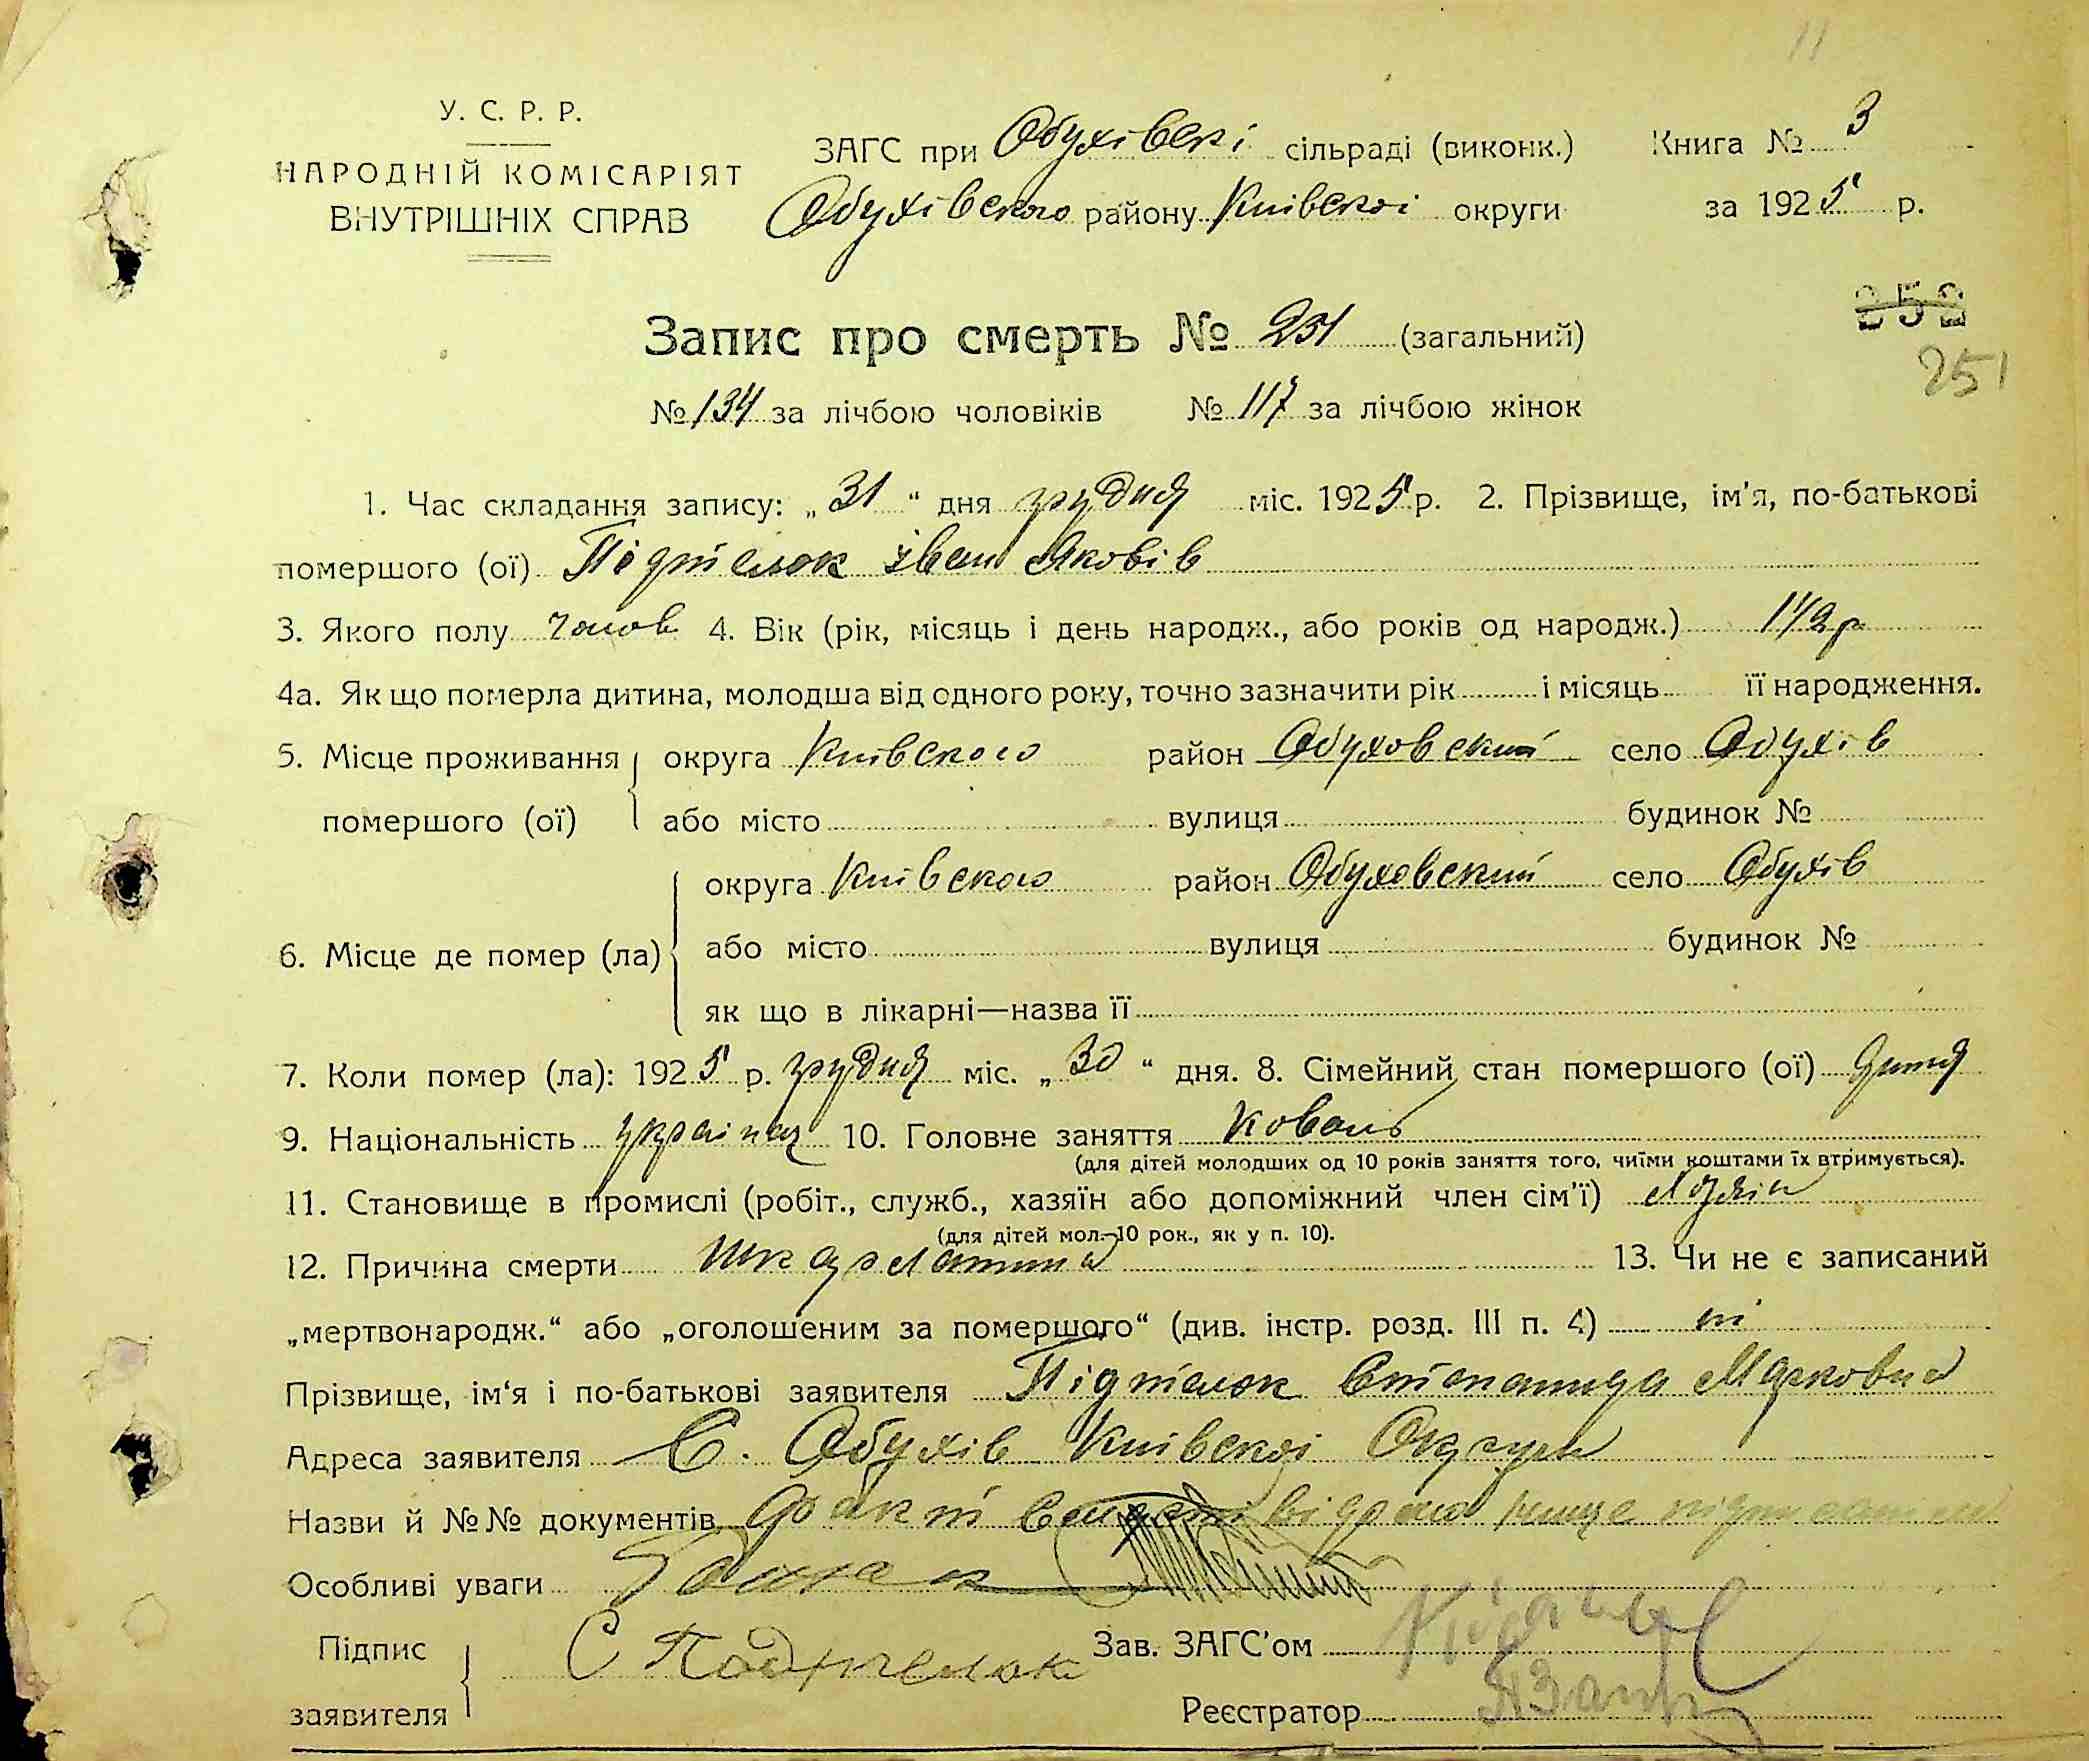 11
У. С. Р. Р.
НАРОДНІЙ КОМІСАРІЯТ
ВНУТРІШНІХ СПРАВ
ЗАГС при Обухівскі сільраді (виконк.) Книга № 3
Обухівского району Київскої округи за 1925 р.
252
Запис про смерть № 251 (загальний)
251
№ 134 за лічбою чоловіків № 117 за лічбою жінок
1. Час складання запису: „31“ дня грудня міс. 1925 р. 2. Прізвище, ім'я, по-батькові
помершого (ої) Підтелок Іван Яковів
3. Якого полу чолов 4. Вік (рік, місяць і день народж., або років од народж.) 1 1/2 р
4а. Як що померла дитина, молодша від одного року, точно зазначити рік і місяць її народження.
5. Місце проживання помершого (ої) округа Київского район Обуховский село Обухів
або місто вулиця будинок №
6. Місце де помер (ла) округа Київского район Обуховский село Обухів
або місто вулиця будинок №
як що в лікарні—назва її
7. Коли помер (ла): 1925 р. грудня міс. „30“ дня. 8. Сімейний стан помершого (ої) дитя
9. Національність українец 10. Головне заняття коваль
(для дітей молодших од 10 років заняття того, чиїми коштами їх втримується).
11. Становище в промислі (робіт., служб., хазяїн або допоміжний член сім'ї) хазяін
(для дітей мол. 10 рок., як у п. 10).
12. Причина смерти шкарлатина 13. Чи не є записаний
„мертвонародж.“ або „оголошеним за помершого“ (див. інстр. розд. III п. 4) ні
Прізвище, ім'я і по-батькові заявителя Підтелок Степанида Марковна
Адреса заявителя С. Обухів Київскоі Округи
Назви й №№ документів факт
Особливі уваги
Підпис заявителя С Подтелок Зав. ЗАГС'ом
Реєстратор